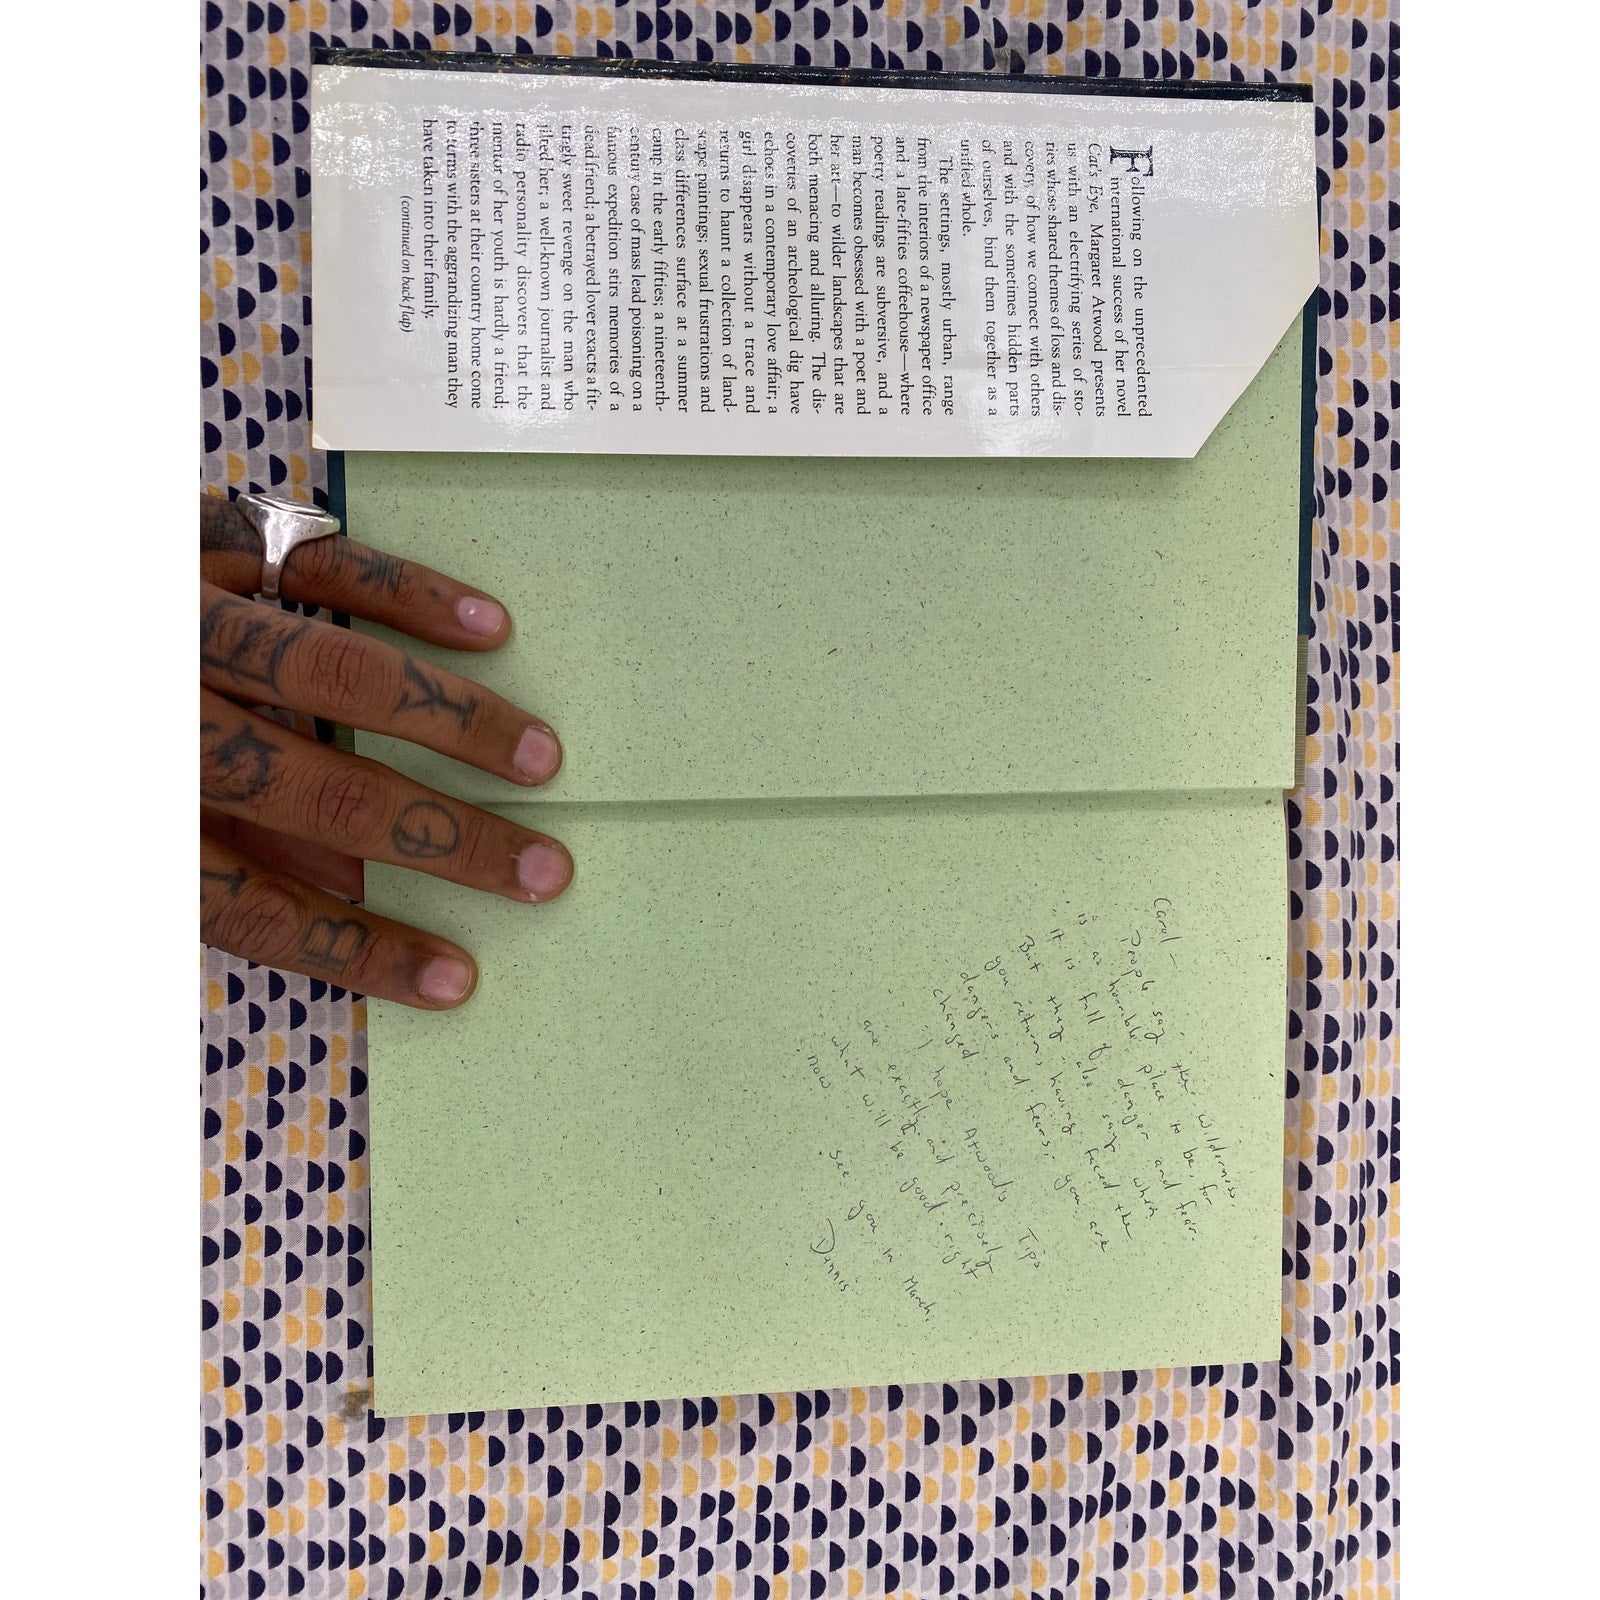 Following on the unprecedented
international success of her novel
Cat's Eye, Margaret Atwood presents
us with an electrifying series of sto-
ries whose shared themes of loss and dis-
covery, of how we connect with others
and with the sometimes hidden parts
of ourselves, bind them together as a
unified whole.
The settings, mostly urban, range
from the interiors of a newspaper office
and a late-fifties coffeehouse—where
poetry readings are subversive, and a
man becomes obsessed with a poet and
her art—to wilder landscapes that are
both menacing and alluring. The dis-
coveries of an archeological dig have
echoes in a contemporary love affair; a
girl disappears without a trace and
returns to haunt a collection of land-
scape paintings; sexual frustrations and
class differences surface at a summer
camp in the early fifties; a nineteenth-
century case of mass lead poisoning on a
famous expedition stirs memories of a
dead friend; a betrayed lover exacts a fit-
tingly sweet revenge on the man who
jilted her; a well-known journalist and
radio personality discovers that the
mentor of her youth is hardly a friend;
three sisters at their country home come
to terms with the aggrandizing man they
have taken into their family.
(continued on back flap)
Carol -
People say the wilderness
is a horrible place to be, for
it is full of danger and fear.
But they also say, when
you return, having faced the
dangers and fears, you are
changed.
I hope Atwood's Tips
are exactly and precisely
what will be good right
now.
See you in March,
Dennis